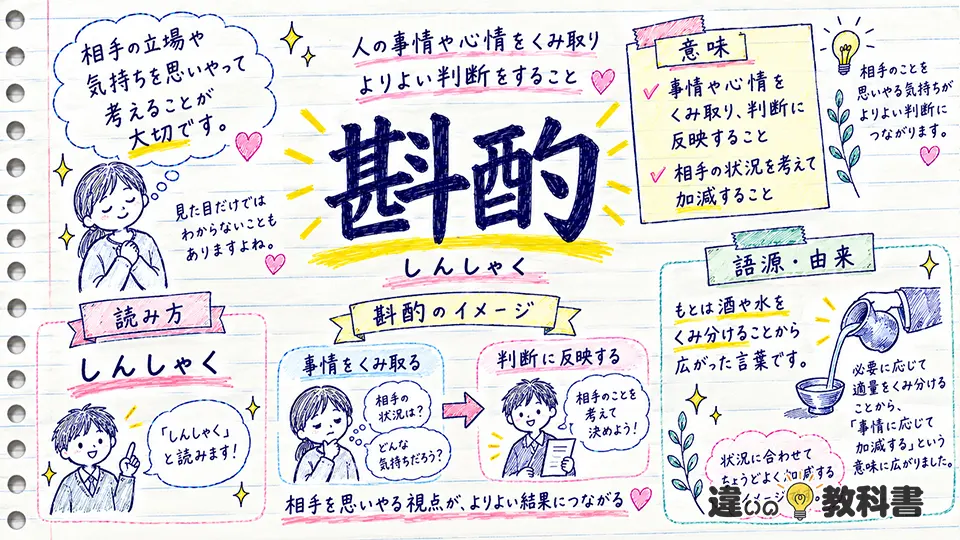 相手の立場や
気持ちを思いやって
考えることが
大切です。
見た目だけでは
わからないことも
ありますよね。
人の事情や心情をくみ取り
よりよい判断をすること
斟酌
しんしゃく
意味
事情や心情を
くみ取り、判断に
反映すること
相手の状況を考えて
加減すること
相手のことを
思いやる気持ちが
よりよい判断に
つながります。
読み方
しんしゃく
「しんしゃく」
と読みます!
斟酌のイメージ
事情をくみ取る
相手の
状況は?
どんな
気持ちだろう?
判断に反映する
相手のことを
考えて
決めよう!
相手を思いやる視点が、よりよい結果につながる
語源・由来
もとは酒や水を
くみ分けることから
広がった言葉です。
必要に応じて
適量をくみ分ける
ことから、
「事情に応じて
加減する」という
意味に広がりました。
状況に合わせて
ちょうどよく加減する
イメージ
違いの教科書